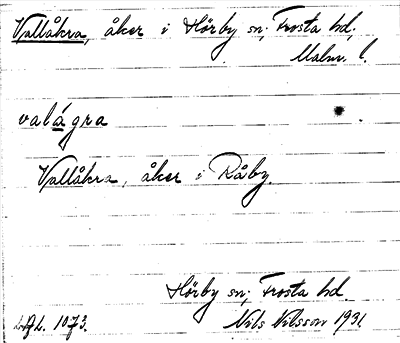 Vallåkra, åker i Hörby sn; Frosta hd.
Malm. l.
valágra
Vallåkra, åker i Råby.
Hörby sn; Frosta hd.
1073. Nils Nilsson 1931